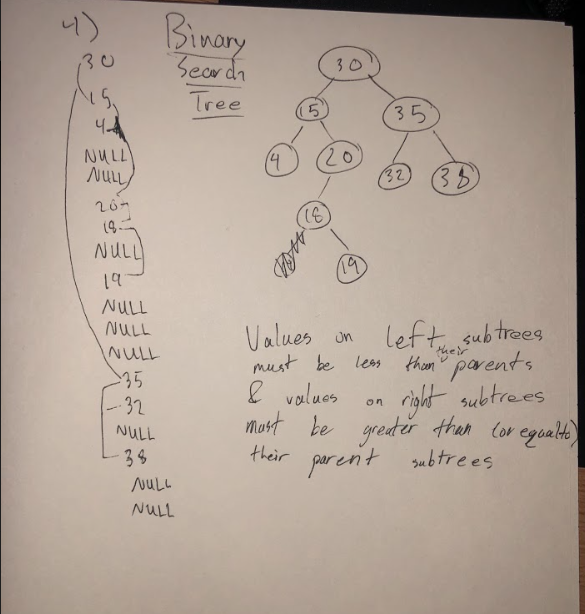 4)
Binary
Search
Tree
30
15
4
NULL
NULL
20
18
NULL
19
NULL
NULL
NULL
35
32
NULL
38
NULL
NULL
30
15
35
4
20
32
38
18
19
Values on left subtrees
must be less than their parents
& values on right subtrees
must be greater than (or equal to)
their parent subtrees